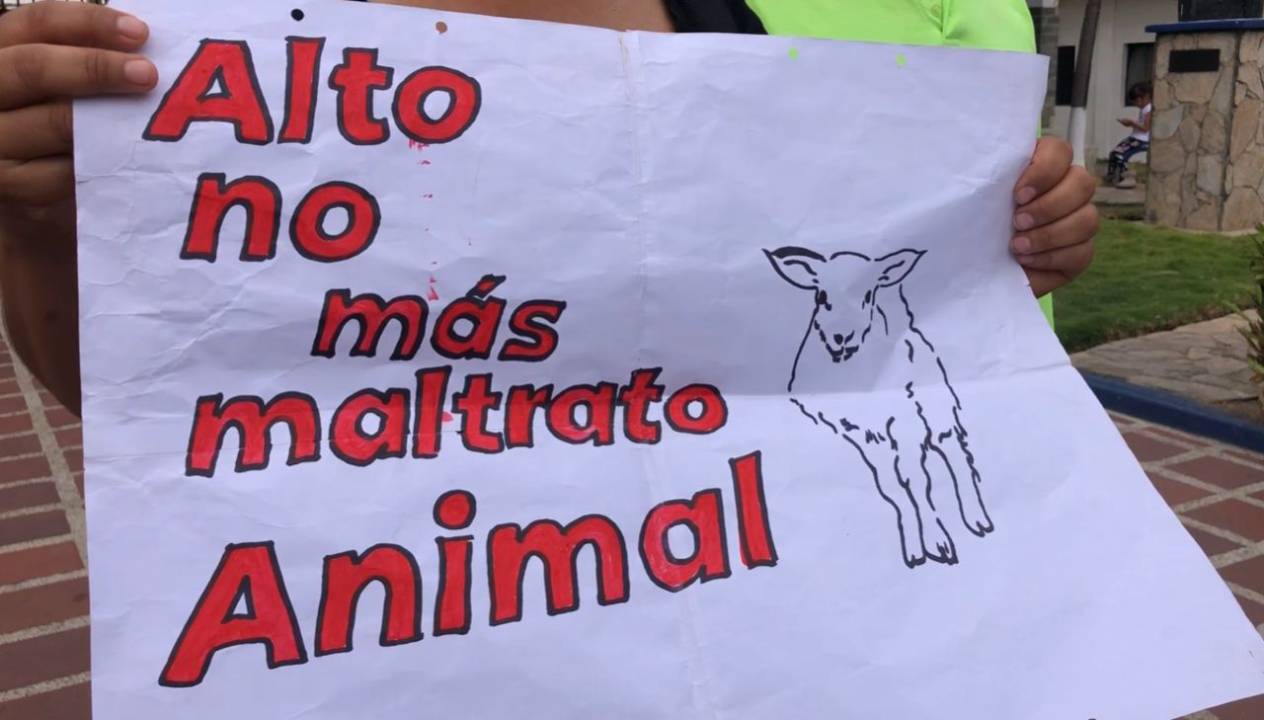 Alto
no
más
maltrato
Animal